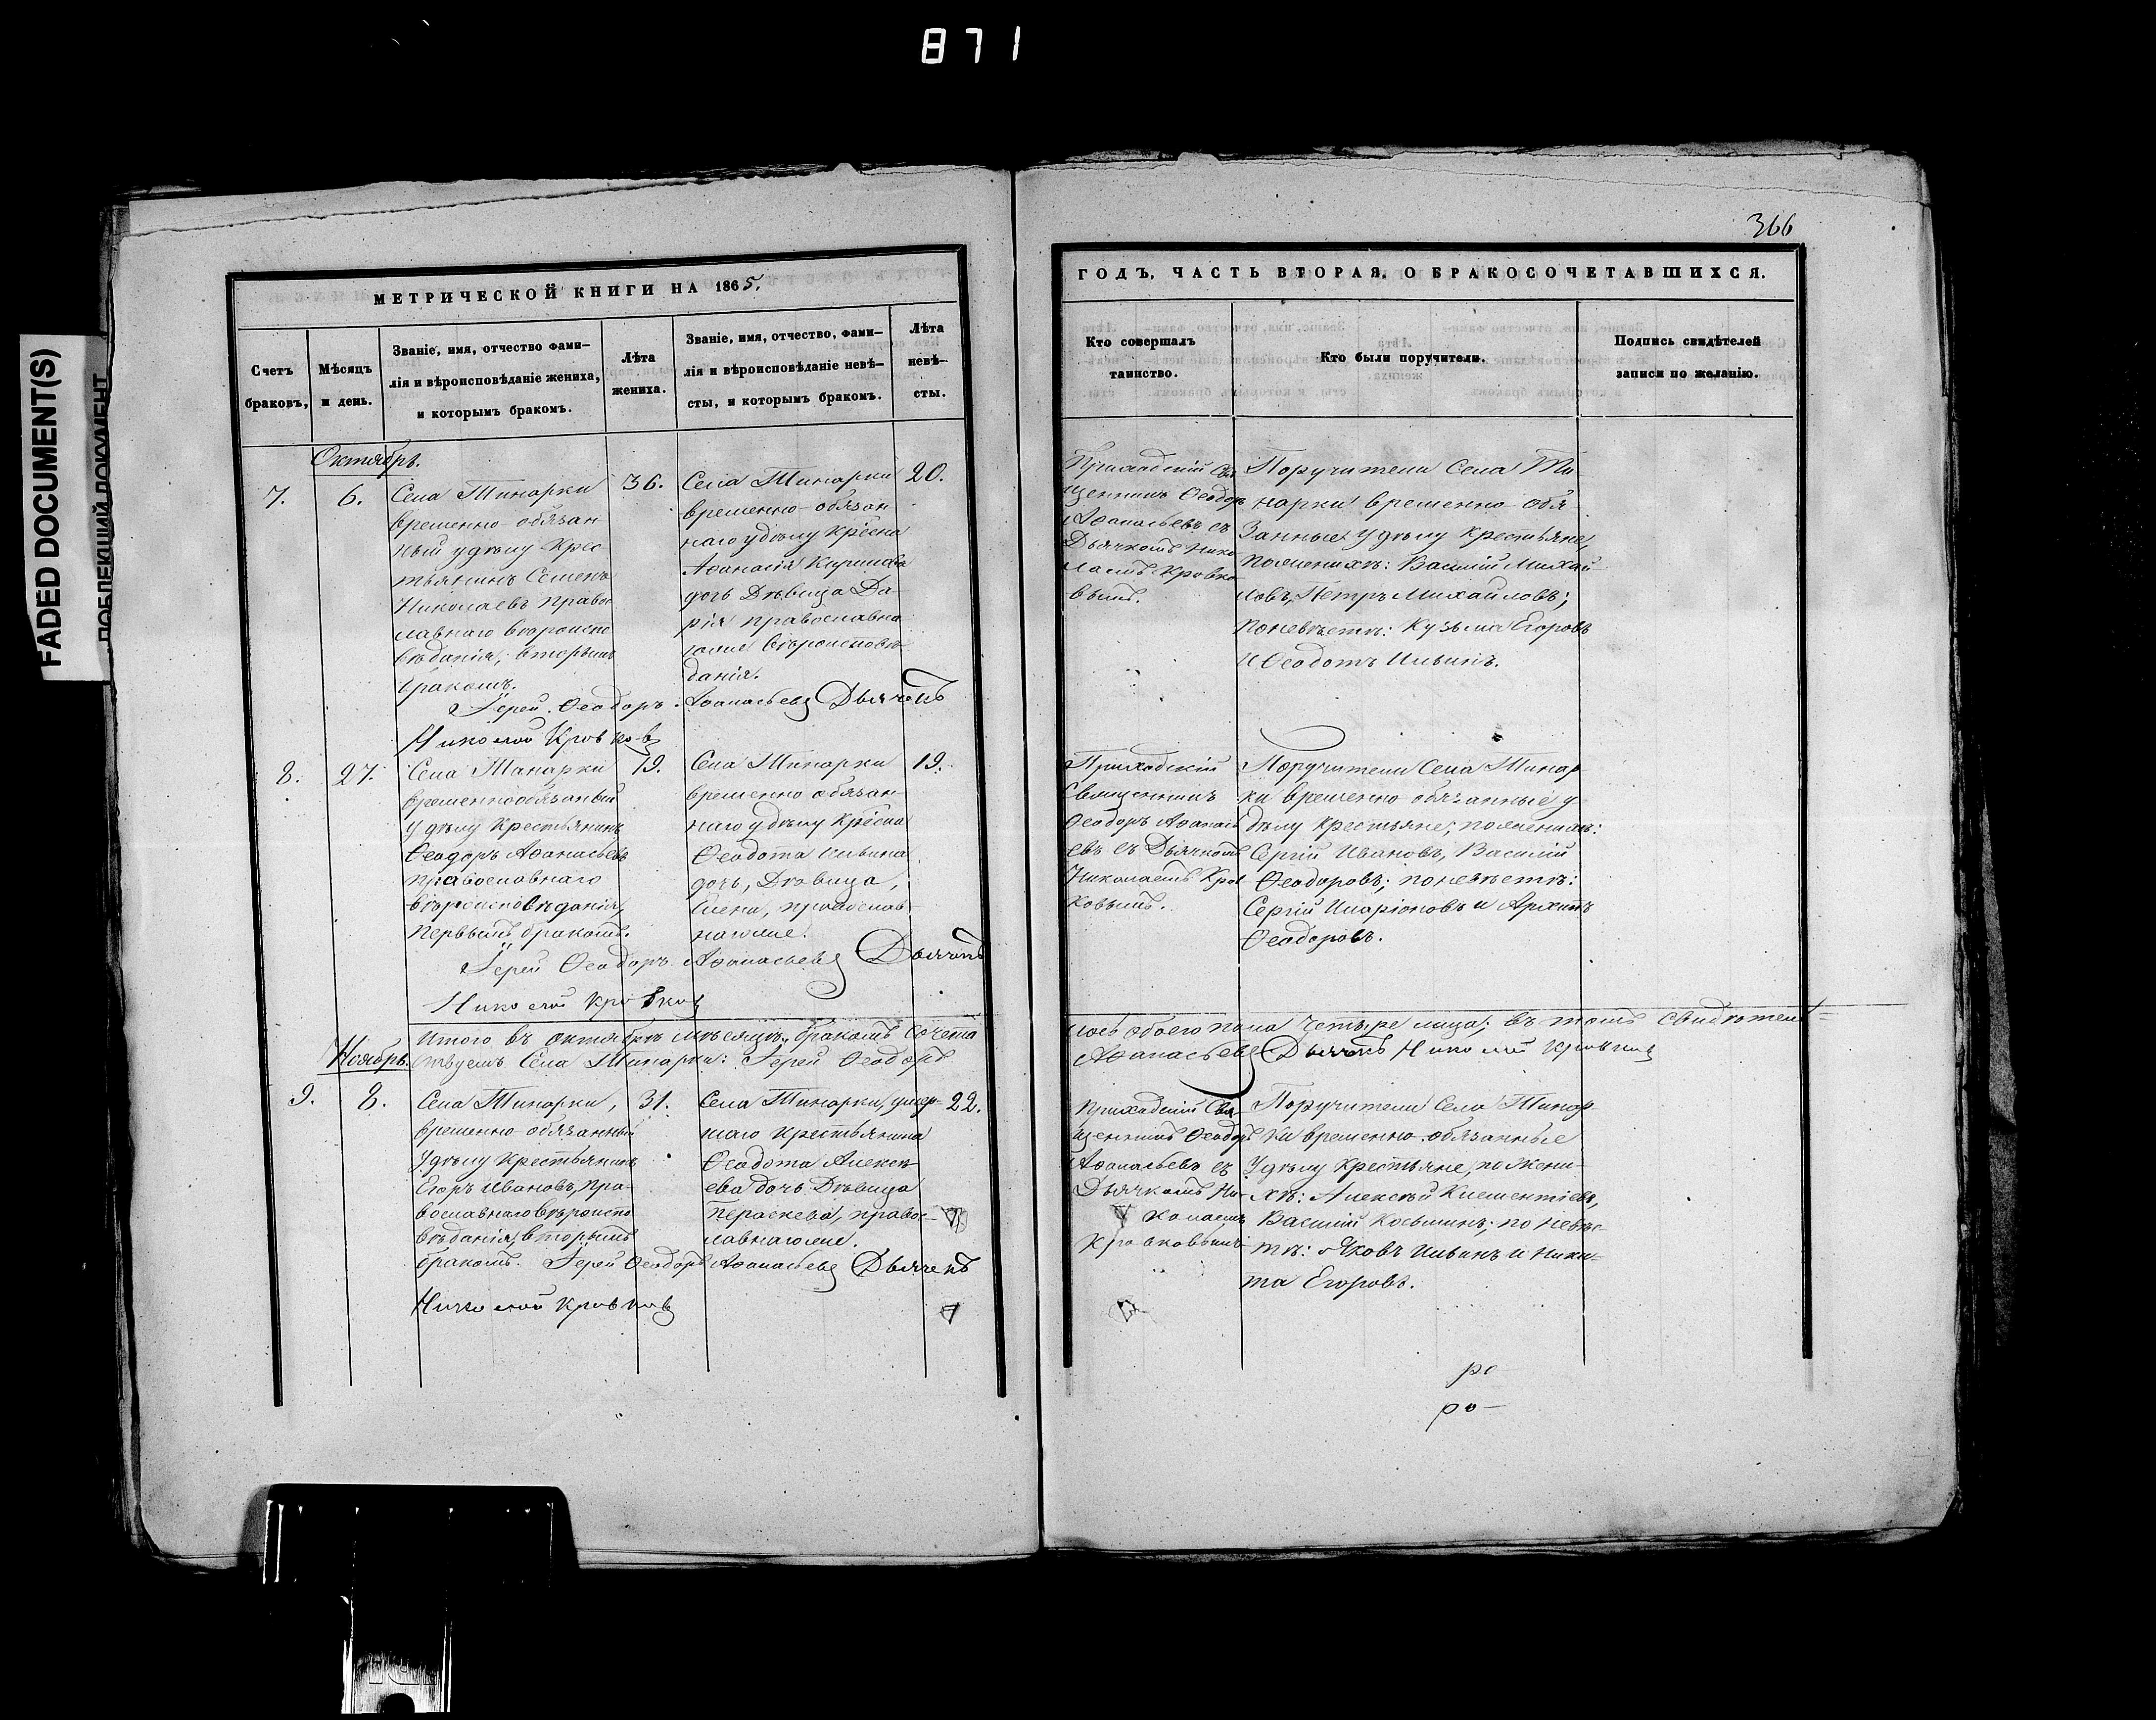 871
FADED DOCUMENT(S)
366
МЕТРИЧЕСКОЙ КНИГИ НА 1865.
Счетъ браковъ,
Мѣсяцъ и день.
Званіе, имя, отчество фами-
лія и вѣроисповѣданіе жениха,
и которымъ бракомъ.
Лѣта
жениха.
Званіе, имя, отчество, фами-
лія и вѣроисповѣданіе невѣ-
сты, и которымъ бракомъ.
Лѣта
невѣ-
сты.
Октябрь.
7.
6.
Села Тинарки
временно-обязан
ный удѣлу Крес
тьянинъ Семенъ
Николаевъ правос
лавнаго вѣроиспо
вѣданія, вторымъ
бракомъ.
36.
Села Тинарки
временно-обязан
наго удѣлу Кресна
Аѳанасія
дочь Дѣвица Да-
рія православна
вѣроисповѣ-
данія.
20.
Іерей Ѳеодоръ Аѳанасьевъ Дьячекъ
Николай Кровков
8.
27.
Села Тинарки
временнообязаный
удѣлу Крестьянинъ
Ѳеодоръ Аѳанасьевъ
православнаго
вѣроисповѣданія,
первымъ бракомъ.
19.
Села Тинарки
временно обязан-
наго удѣлу Кресна
Ѳеодота Ильина
дочь, Дѣвица,
Елена, православ
19.
Іерей Ѳеодоръ Аѳанасьевъ Дьячекъ
Николай Кровков
Итого въ октябрѣ мѣсяцѣ, бракомъ сочета
Ноябрь.
твуемъ Села Тинарки: Іерей Ѳеодоръ
9.
8.
Села Тинарки,
временно-обязанный
удѣлу Крестьянинъ
Егоръ Ивановъ, пра-
вославнаго вѣроиспо
вѣданія, вторымъ
бракомъ.
31.
Села Тинарки, умер-
шаго крестьянина
Ѳеодота Алексѣ-
ева дочь Дѣвица
Параскева, правос-
22.
Іерей Ѳеодоръ Аѳанасьевъ Дьячекъ
Николай Кровков
ГОДЪ, ЧАСТЬ ВТОРАЯ, О БРАКОСОЧЕТАВШИХСЯ.
Кто совершалъ
таинство.
Кто были поручители.
Подпись свидѣтелей
записи по желанію.
Приходскій Свя
щенникъ Ѳеодоръ
Аѳанасьевъ съ
Дьячкомъ Нико
лаемъ Кровко
вымъ.
Поручители Села Ти-
нарки временно обя
занные удѣлу крестьяне,
по женихѣ: Василій Михай
ловъ, Петръ Михайловъ;
по невѣстѣ: Кузьма Егоровъ
и Ѳеодотъ Ильинъ.
Приходскій
Священникъ
Ѳеодоръ Аѳанась
евъ съ Дьячкомъ
Николаемъ Кров
ковымъ.
Поручители Села Тинар
ки временно обязанные у-
дѣлу крестьяне, по женихѣ:
Сергій Ивановъ, Василій
Ѳеодоровъ; по невѣстѣ:
Сергій Иларіоновъ и Архипъ
Ѳеодоровъ.
лось обоего пола четыре лица; въ томъ свидѣтель-
Аѳанасьевъ Дьячекъ Николай Кровков
Приходскій Свя-
щенникъ Ѳеодоръ
Аѳанасьевъ съ
Дьячкомъ Ни-
колаемъ
Кровковымъ
Поручители Села Тинар-
ки временно-обязанные
удѣлу крестьяне, по жени-
хѣ: Алексѣй Клементіевъ,
Василій Косьминъ; по невѣс-
тѣ: Яковъ Ильинъ и Ники-
та Егоровъ.
ро
ро-